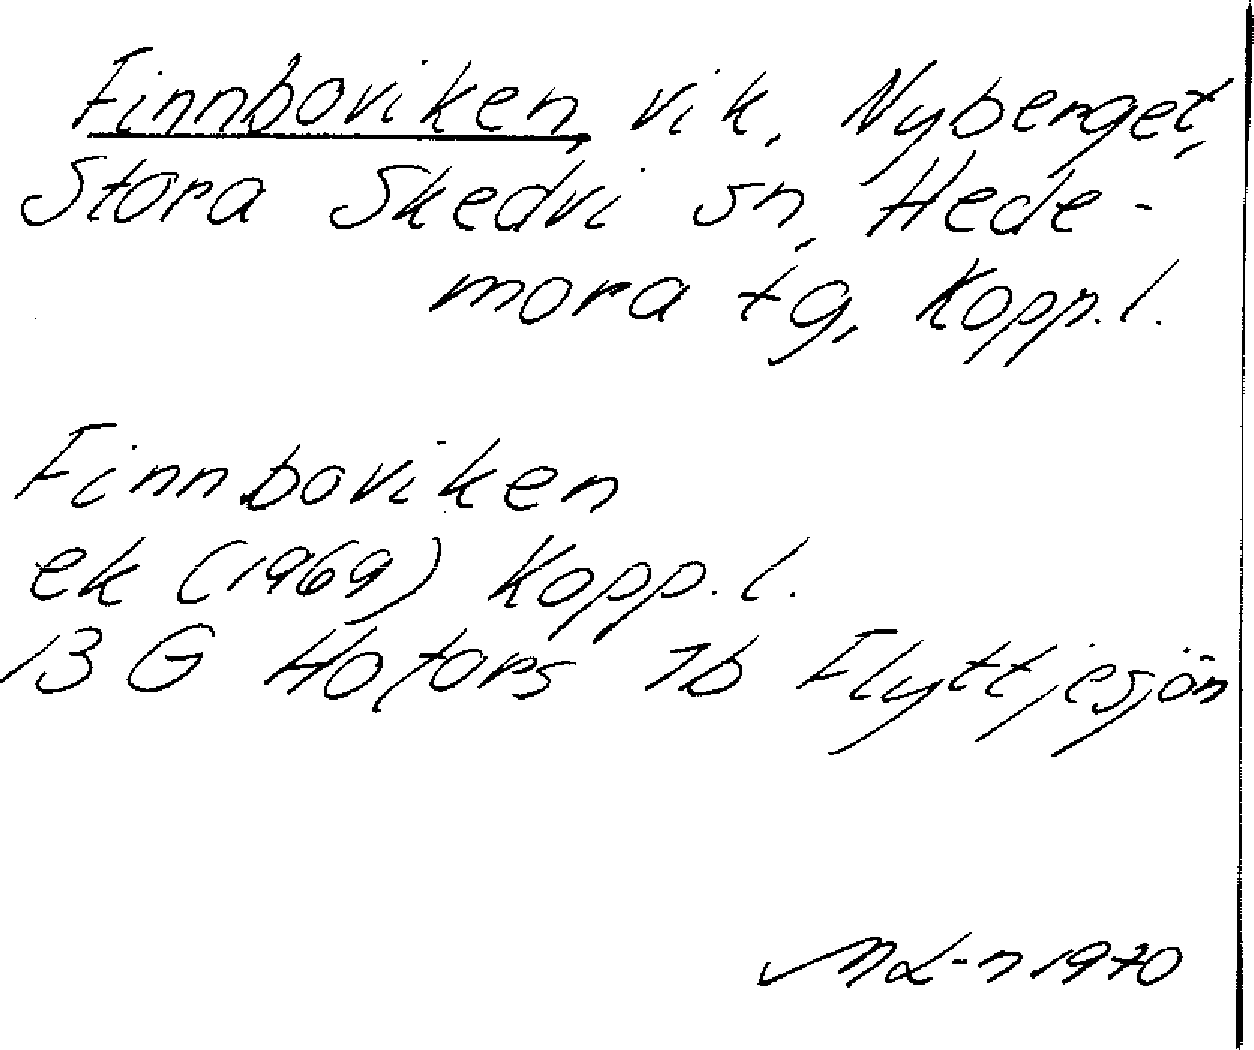 Finnboviken, vik, Nyberget,
Stora Skedvi sn, Hede-
mora tg, Kopp. l.
Finnboviken
ek (1969) Kopp. l.
13 G Hofors 7b Flyttjesjön
ML-n 1970